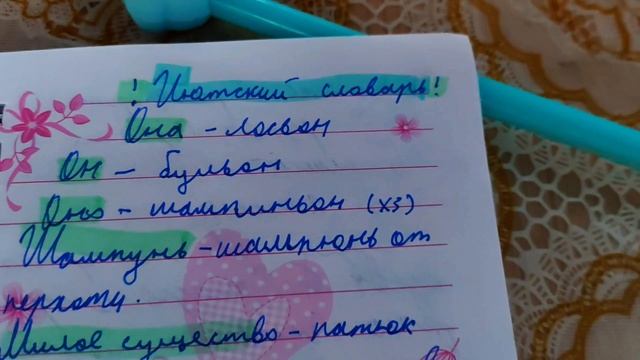 ! Июотский словарь!
Она - лосьон
Он - бульон
Оно - шампиньон (хз)
Шампунь - шампюнь от
перхоти.
Милое существо - патюк